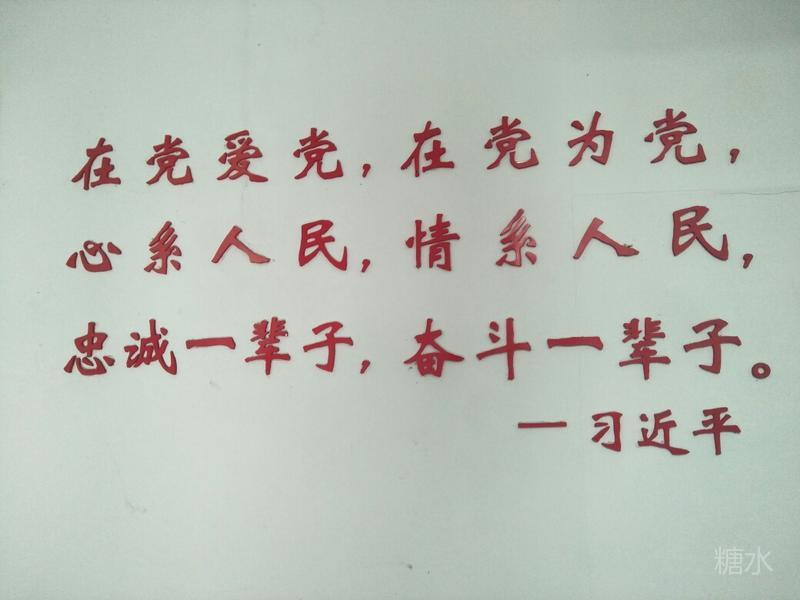 在党爱党，在党为党，
心系人民，情系人民，
忠诚一辈子，奋斗一辈子。
一习近平
糖水